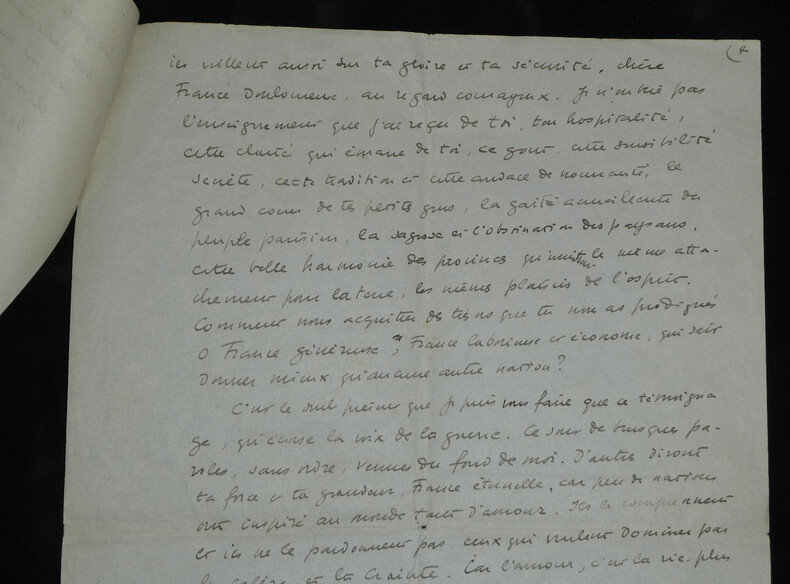 4
ils veillent aussi sur ta gloire et ta sécurité, chère
France douloureuse, au regard courageux. Je n'oublie pas
l'enseignement que j'ai reçu de toi, ton hospitalité,
cette clarté qui émane de toi, ce goût, cette sensibilité
secrète, cette tradition et cette audace de nouveauté, le
grand cœur de tes petites gens, la gaîté accueillante du
peuple parisien, la sagesse et l'obstination des paysans,
cette belle harmonie des provinces qu'unit le même atta-
chement pour la terre, les mêmes plaisirs de l'esprit.
Comment nous acquitter des trésors que tu nous as prodigués
O France généreuse, France laborieuse et économe, qui sait
donner mieux qu'aucune autre nation?
C'est le seul présent que je puis vous faire que ce témoigna
ge, qu'écrase la voix de la guerre. Ce sont de brusques pa-
roles, sans ordre, venues du fond de moi. D'autres diront
ta force et ta grandeur, France éternelle, car peu de nations
ont inspiré au monde tant d'amour. Ils le comprennent
et ils ne le pardonnent pas ceux qui veulent dominer par
la colère et la crainte. Car l'amour, c'est la vie plus